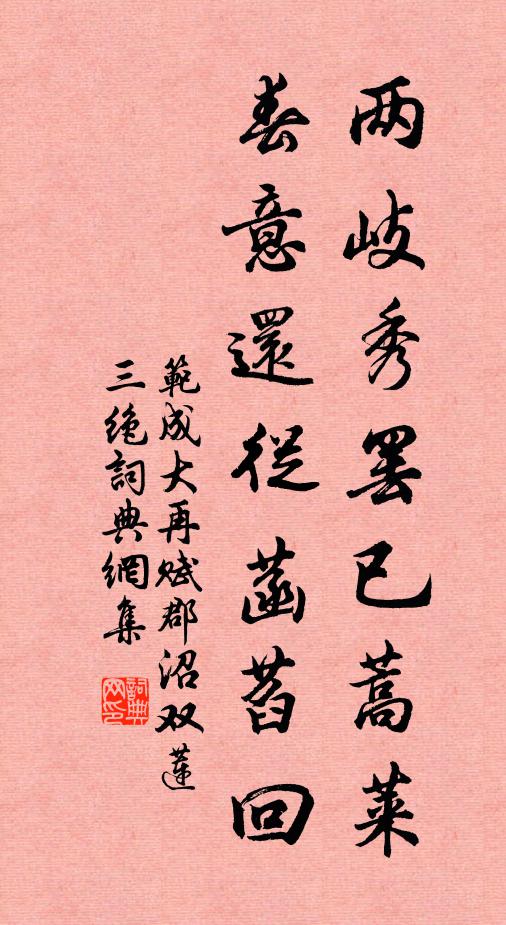 两岐秀罢已蒿莱
春意還從菡萏回
範成大再赋郡沼双蓮
三绝詞典網集
詞典
网印